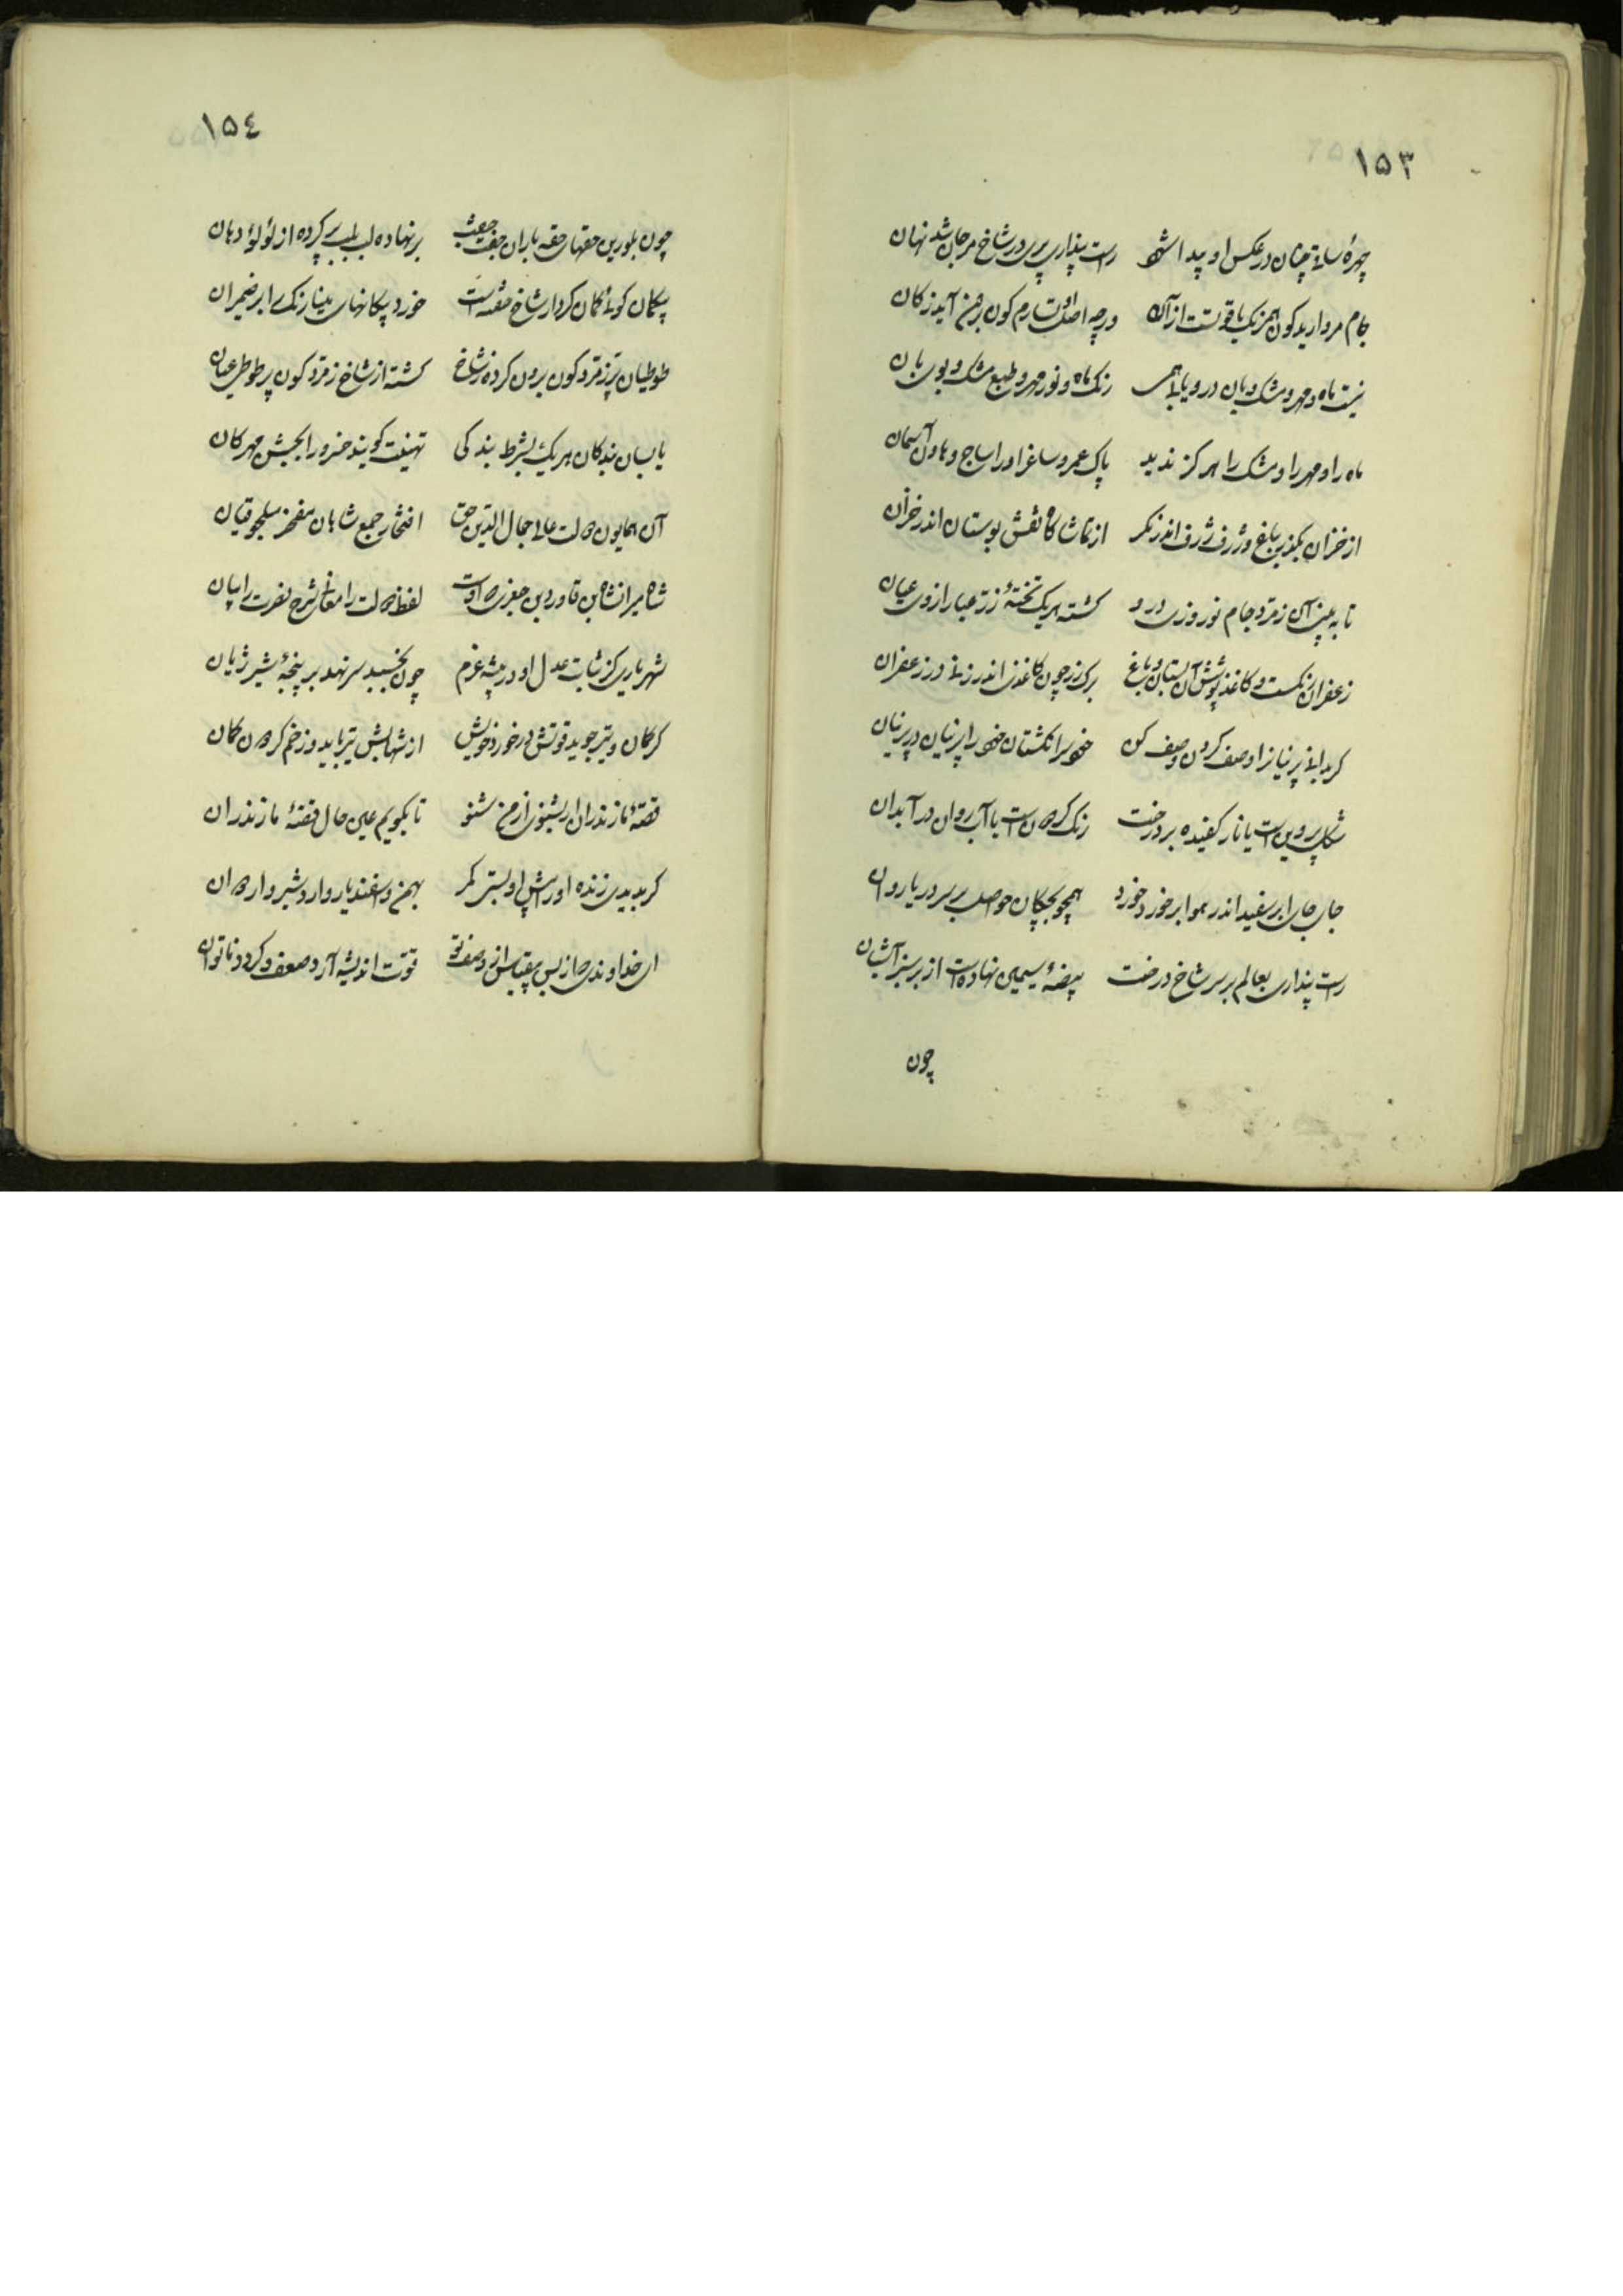 ۱۵۳
چهرهٔ ساقی چنان در عکس او پیدا شود راست پنداری پری در شاخ مرجان شد نهان
جام مروارید کون همرنک یاقوتست از آن ورچه اصل اوست رم کون بهمن آید ز کان
نیست ماه و مهر و مشک و بان در و یابی همی رنک ماه و نور مهر و طبع مشک و بوی بان
ماه را و مهر را و مشک را هرکز ندید پاک عمر و ساغر او را ساج و هاون آسمان
از خزان بکذر بباغ و ژرف ژرف اندر نکر از تماشاگاه نقش بوستان اندر خزان
تا به بینی آن زمرد جام نوروزی درو کشته هر یک تختهٔ زر عیار از وی عیان
زعفران رنکست و کاغذ پوشش آن بستان و باغ برک رز چون کاغذی اندر زده در زعفران
کر بدانی پرنیان را وصف کردن وصف کن خوید را نکشتان خود را پرنیان در پرنیان
شکل پروین است یا نار کفیده بر درخت رنک کردون است یا آب روان در آبدان
جای جای ابر سفید اندر هوا بر خورد خورد همچو بچکان حواصل بر سر دریا روان
راست پنداری بعالم بر سر شاخ درخت بیضهٔ سیمین نهاده است از بر سبز آشیان
چون
۱۵٤
چون بلورین حقهای حقه بازان جفت جفت برنهاده لب بلب پر کرده از لؤلؤ دهان
پیکان کوئی کمان کردار شاخ خورد پیکانهای مینا رنک دارد ضیمران
طوطیان پر زمرد کون برون کرده ز شاخ کشته از شاخ زمرد کون پر طوطی عیان
با بسان بندکان هر یک بشرط بندکی تهنیت کویند خسرو را بجشن مهرکان
آن همایون دولت عالی جمال الدین حق افتخار جمع شاهان مفخر سلجوقیان
شاه میرانشاه بن قاورد بن جغری که اوست لفظ دولت را معانی شرح نصرت را بیان
شهریاری کز نهایت عدل او در بیشه غرم چون بخسبد سر نهد بر پنجهٔ شیر ژیان
کر کمان و تیر جوید قوتش در خورد خویش از شهابش تیر باید وز خم کردون کمان
قصهٔ مازندران ار بشنوی از من شنو تا بکویم عین حال قصهٔ مازندران
کر بدیدی زنده او را پیش او بستی کمر بهمن و اسفندیار و اردشیر و اردوان
ای خداوندی که از بس بیقیاسی از وصف تو قوت اندیشه آرد ضعف و کردد ناتوان